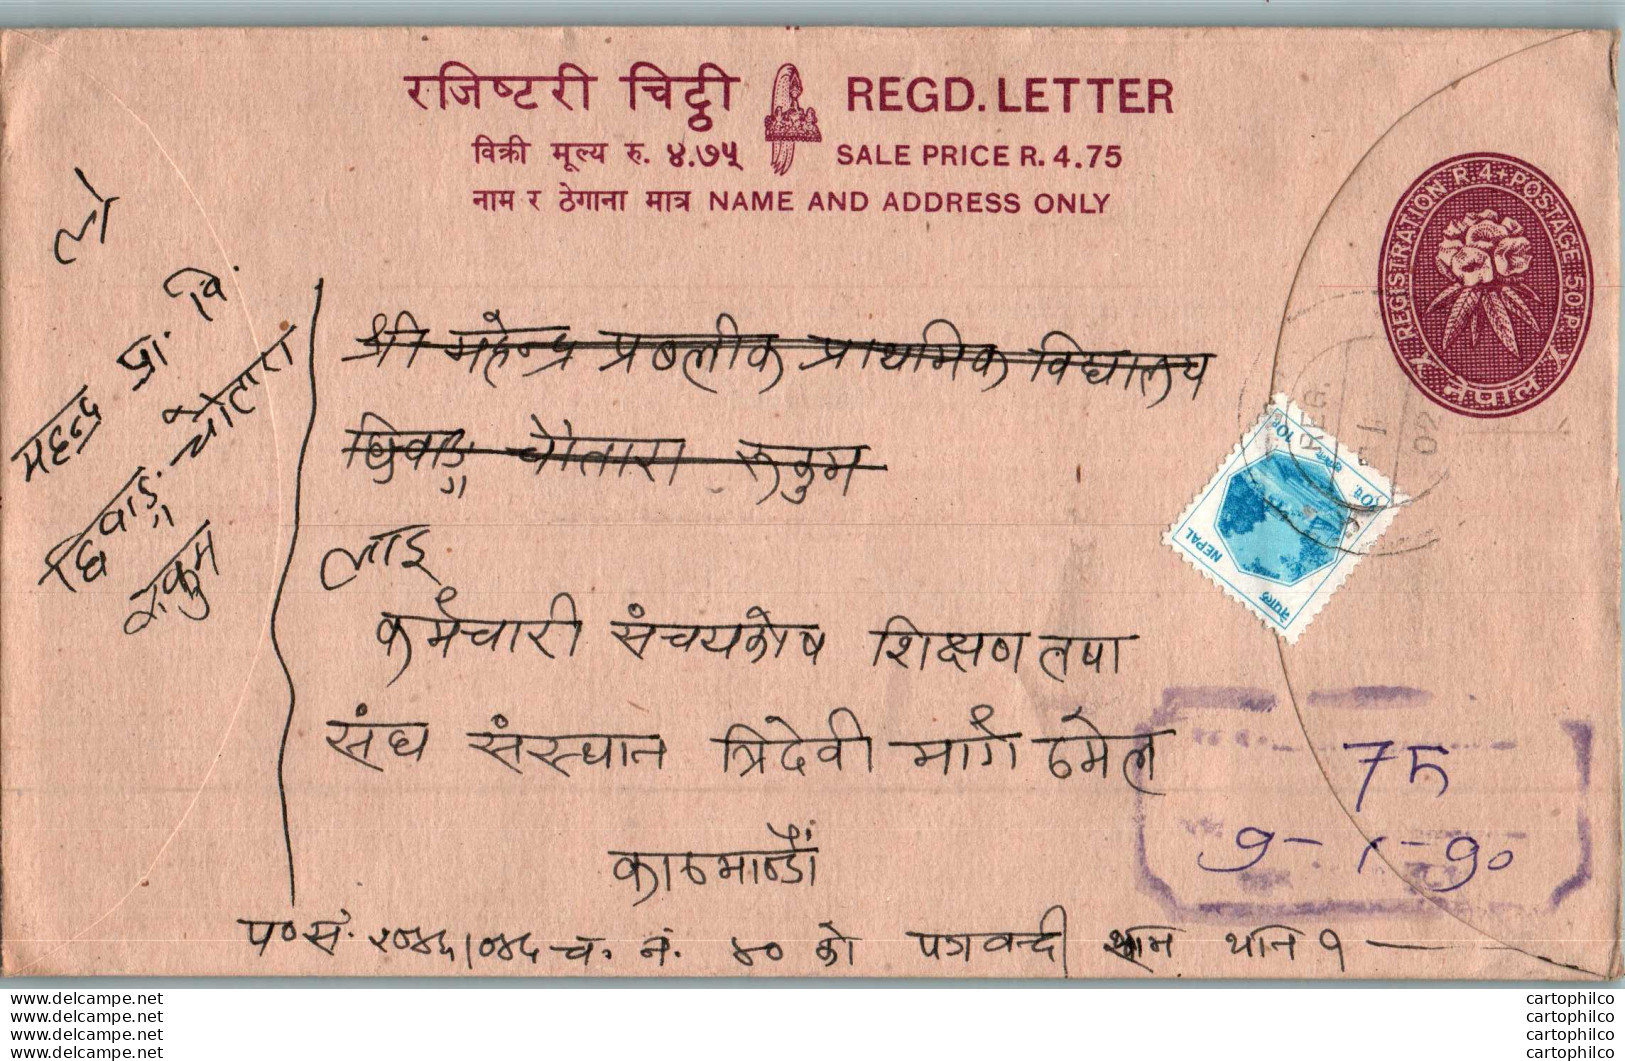 रजिष्टरी चिट्ठी REGD. LETTER
विक्री मूल्य रु. ४.७५ SALE PRICE R. 4.75
नाम र ठेगाना मात्र NAME AND ADDRESS ONLY
REGISTRATION R.4+POSTAGE 50 P.
नेपाल
ले
महेन्द्र प्रा. वि.
चौतारा
रुकुम
श्री महेन्द्र प्रबलीक प्राथमिक विद्यालय
चौतारा रुकुम
10P
NEPAL
नेपाल
लाई
कर्मचारी संचयकोष शिक्षण तथा
संघ संस्थान त्रिदेवी मार्ग ठमेल
काठमाण्डौं
75
9- 1-90
प०सं. २०४६/०४६ च. नं. ४० को
www.delcampe.net
www.delcampe.net
www.delcampe.net
www.delcampe.net
cartophilco
cartophilco
cartophilco
cartophilco